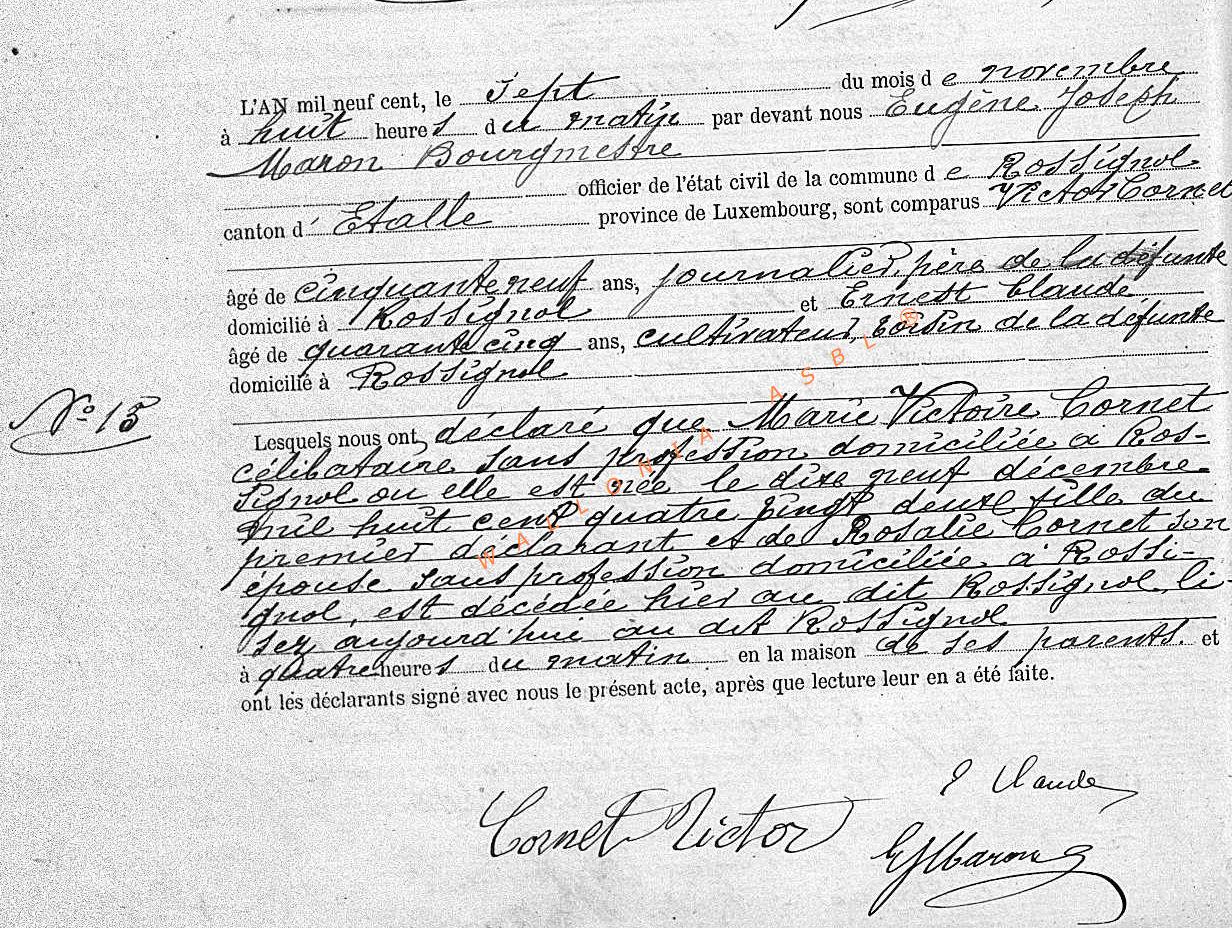 L'AN mil neuf cent, le sept du mois d e novembre
à huit heures du matin par devant nous Eugène Joseph
Maron Bourgmestre
officier de l'état civil de la commune d e Rossignol
canton d' Etalle province de Luxembourg, sont comparus Victor Cornet
âgé de cinquante neuf ans, journalier, père de la défunte
domicilié à Rossignol et Ernest Claude
âgé de quarante cinq ans, cultivateur, voisin de la défunte
domicilié à Rossignol
N° 15
Lesquels nous ont déclaré que Marie Victoire Cornet
célibataire sans profession domiciliée à Ros-
signol ou elle est née le dixe neuf décembre
mil huit cent quatre vingt deuxe fille du
premier déclarant et de Rosalie Cornet son
épouse sans profession domiciliée à Rossi-
gnol, est décédée hier au dit Rossignol, li
sez aujourd'hui au dit Rossignol
à quatre heures du matin en la maison de ses parents. et
ont les déclarants signé avec nous le présent acte, après que lecture leur en a été faite.
WALLONIA ASBL ®
E Claude
Cornet Victor
EJMaron